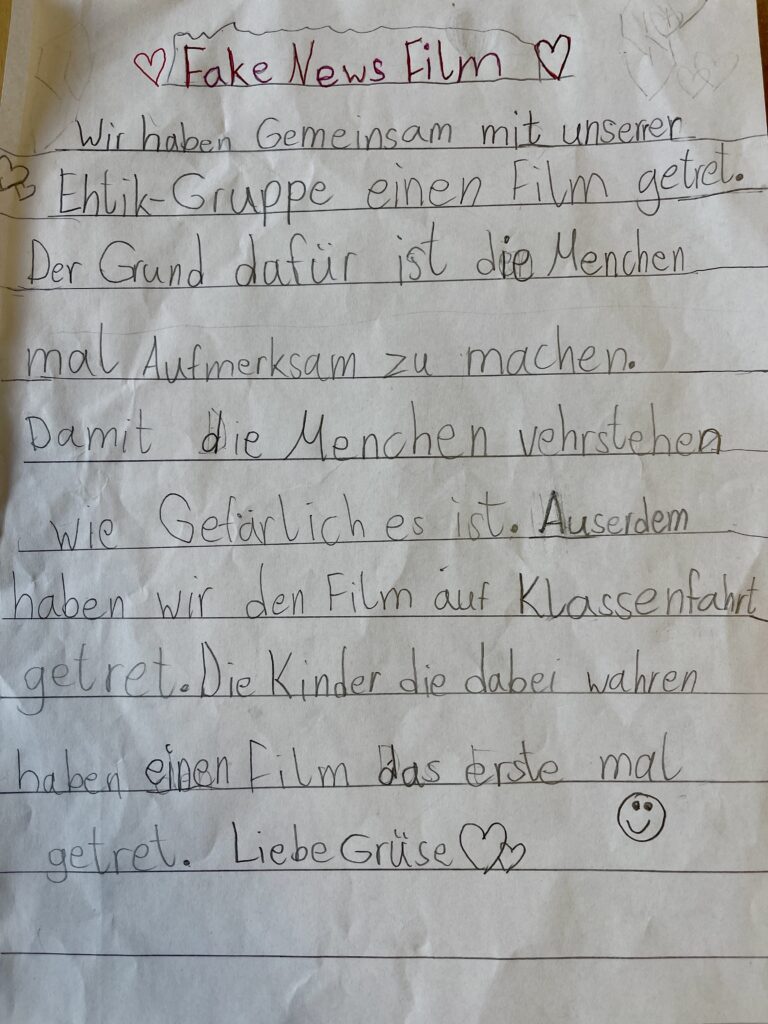 Fake News Film
Wir haben Gemeinsam mit unserer
Ehtik-Gruppe einen Film getret.
Der Grund dafür ist die Menchen
mal Aufmerksam zu machen.
Damit die Menchen vehrstehen
wie Gefärlich es ist. Auserdem
haben wir den Film auf Klassenfahrt
getret. Die Kinder die dabei wahren
haben einen Film das erste mal
getret. Liebe Grüse